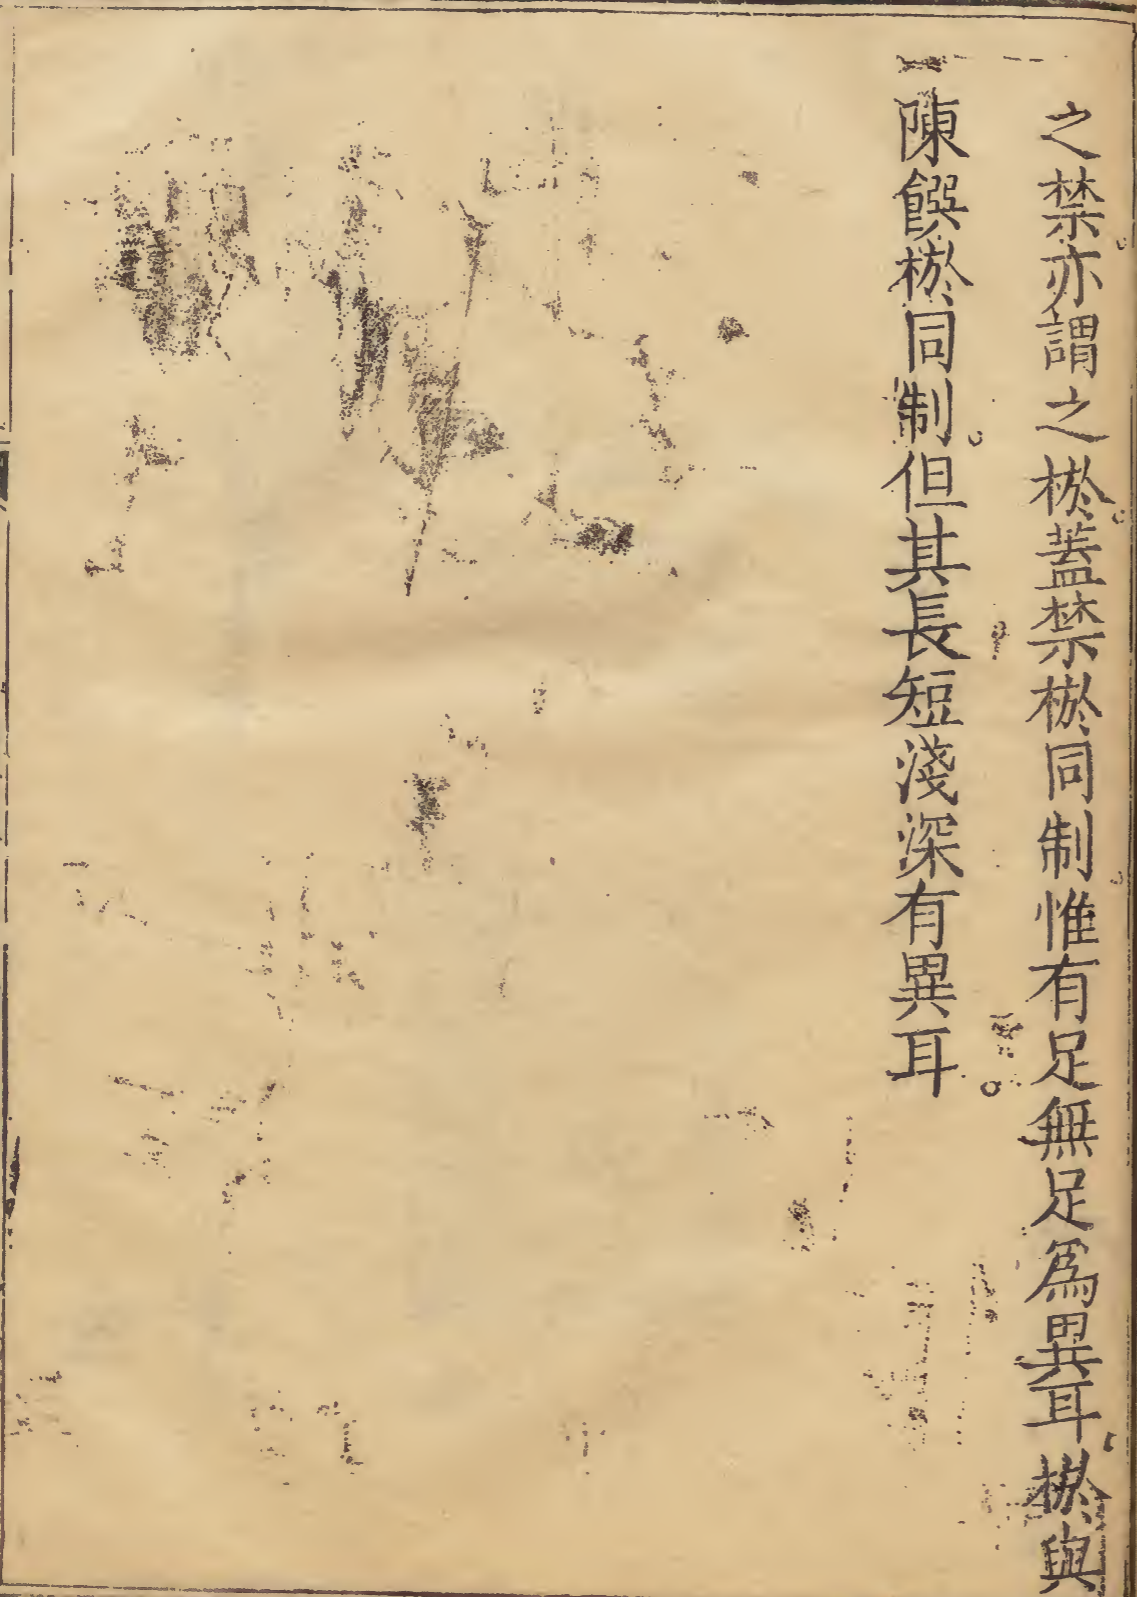 之禁亦謂之棜蓋禁棜同制惟有足無足爲異耳棜與
陳饌棜同制但其長短淺深有異耳